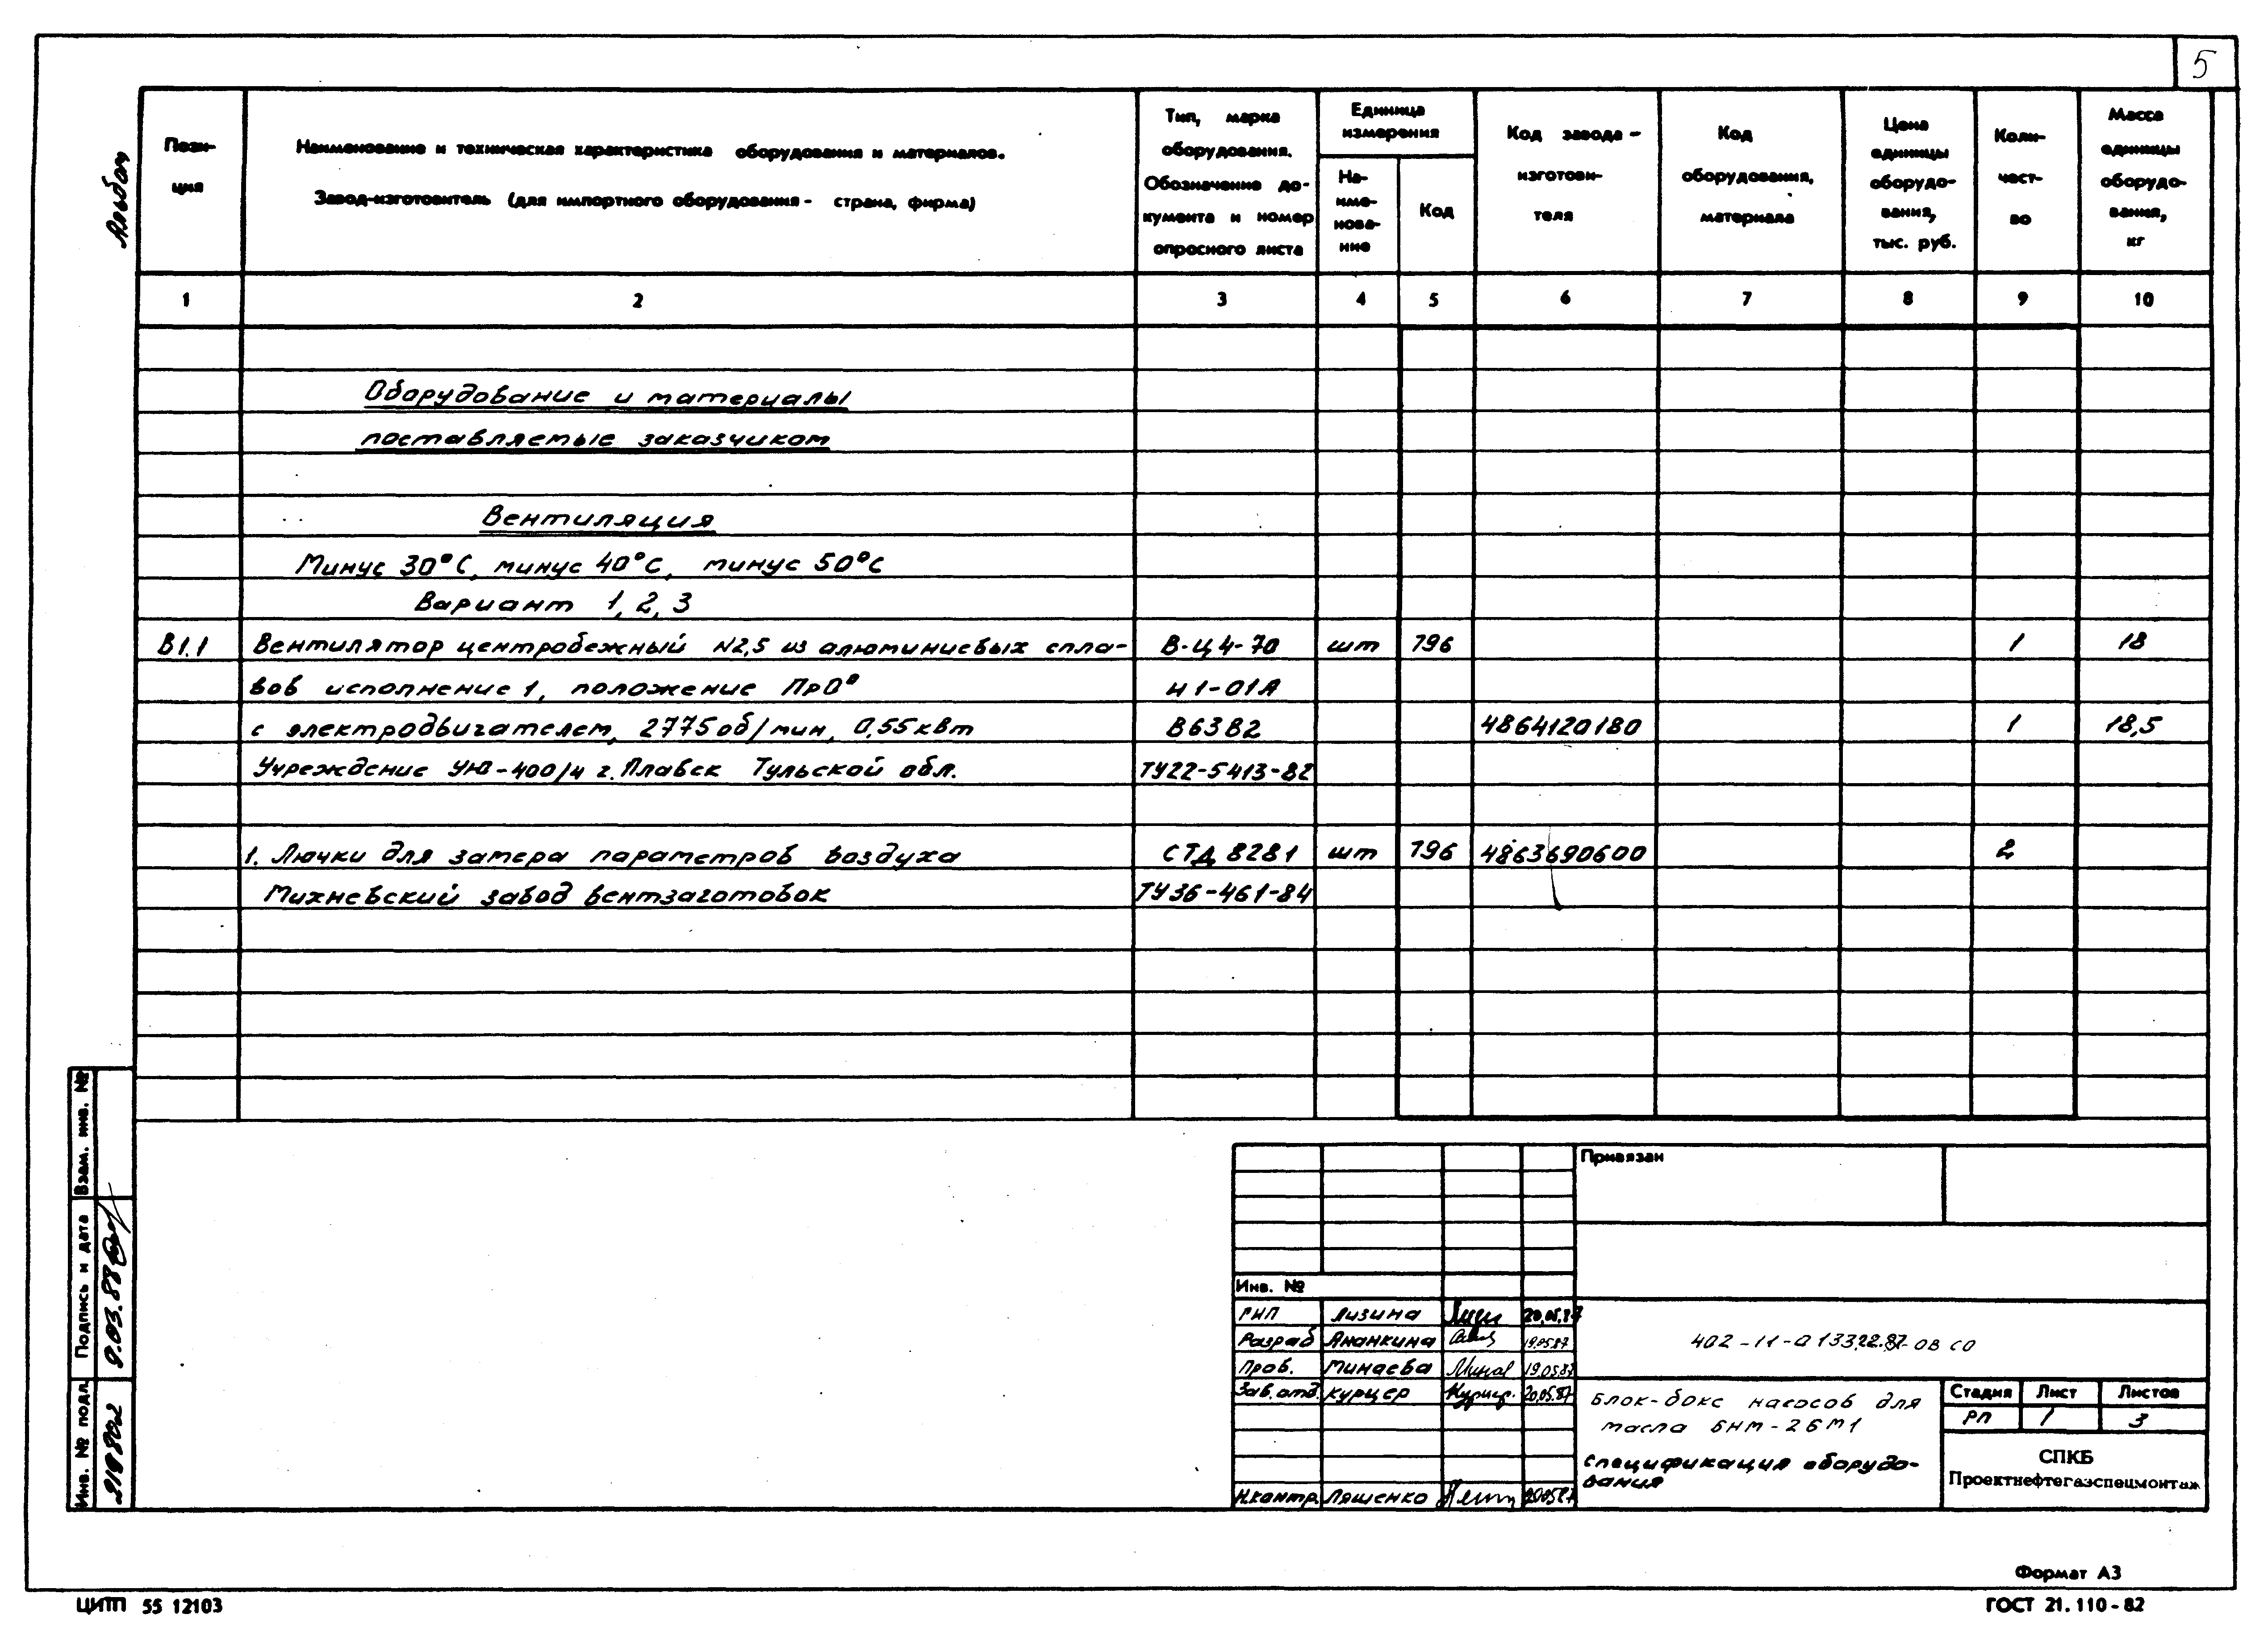 5
Альбом
Пози-
ция
Наименование и техническая характеристика оборудования и материалов.
Завод-изготовитель (для импортного оборудования - страна, фирма)
Тип, марка
оборудования.
Обозначение до-
кумента и номер
опросного листа
Единица
измерения
На-
име-
нова-
ние
Код
Код завода -
изготови-
теля
Код
оборудования,
материала
Цена
единицы
оборудо-
вания,
тыс. руб.
Коли-
чест-
во
Масса
единицы
оборудо-
вания,
кг
1 2 3 4 5 6 7 8 9 10
Оборудование и материалы
поставляемые заказчиком
Вентиляция
Минус 30°С, минус 40°С, минус 50°С
Вариант 1, 2, 3
В1.1 Вентилятор центробежный N2,5 из алюминиевых спла- В-Ц4-70 шт 796 1 18
вов исполнение 1, положение Пр0° И1-01А
с электродвигателем, 2775 об/мин, 0,55 квт В63В2 4864120180 1 18,5
Учреждение УЮ-400/4 г. Плавск Тульской обл. ТУ22-5413-82
1. Лючки для замера параметров воздуха СТД 8281 шт 796 4863690600 2
Михневский завод вентзаготовок ТУ36-461-84
Взам. инв. №
Подпись и дата
Инв. № подл.
Привязан
Инв. №
ГИП Лизина 20.05.87
Разраб Ананкина 19.05.87
Пров. Минаева 19.05.87
Зав.отд. Курцер 20.05.87
Н.контр. Ляшенко 20.05.87
402-11-0133.22.87-ОВ СО
Блок-бокс насосов для
масла БНМ-2БМ1
спецификация оборудо-
вания
Стадия Лист Листов
РП 1 3
СПКБ
Проектнефтегазспецмонтаж
Формат А3
ЦИТП 55 12103
ГОСТ 21.110-82